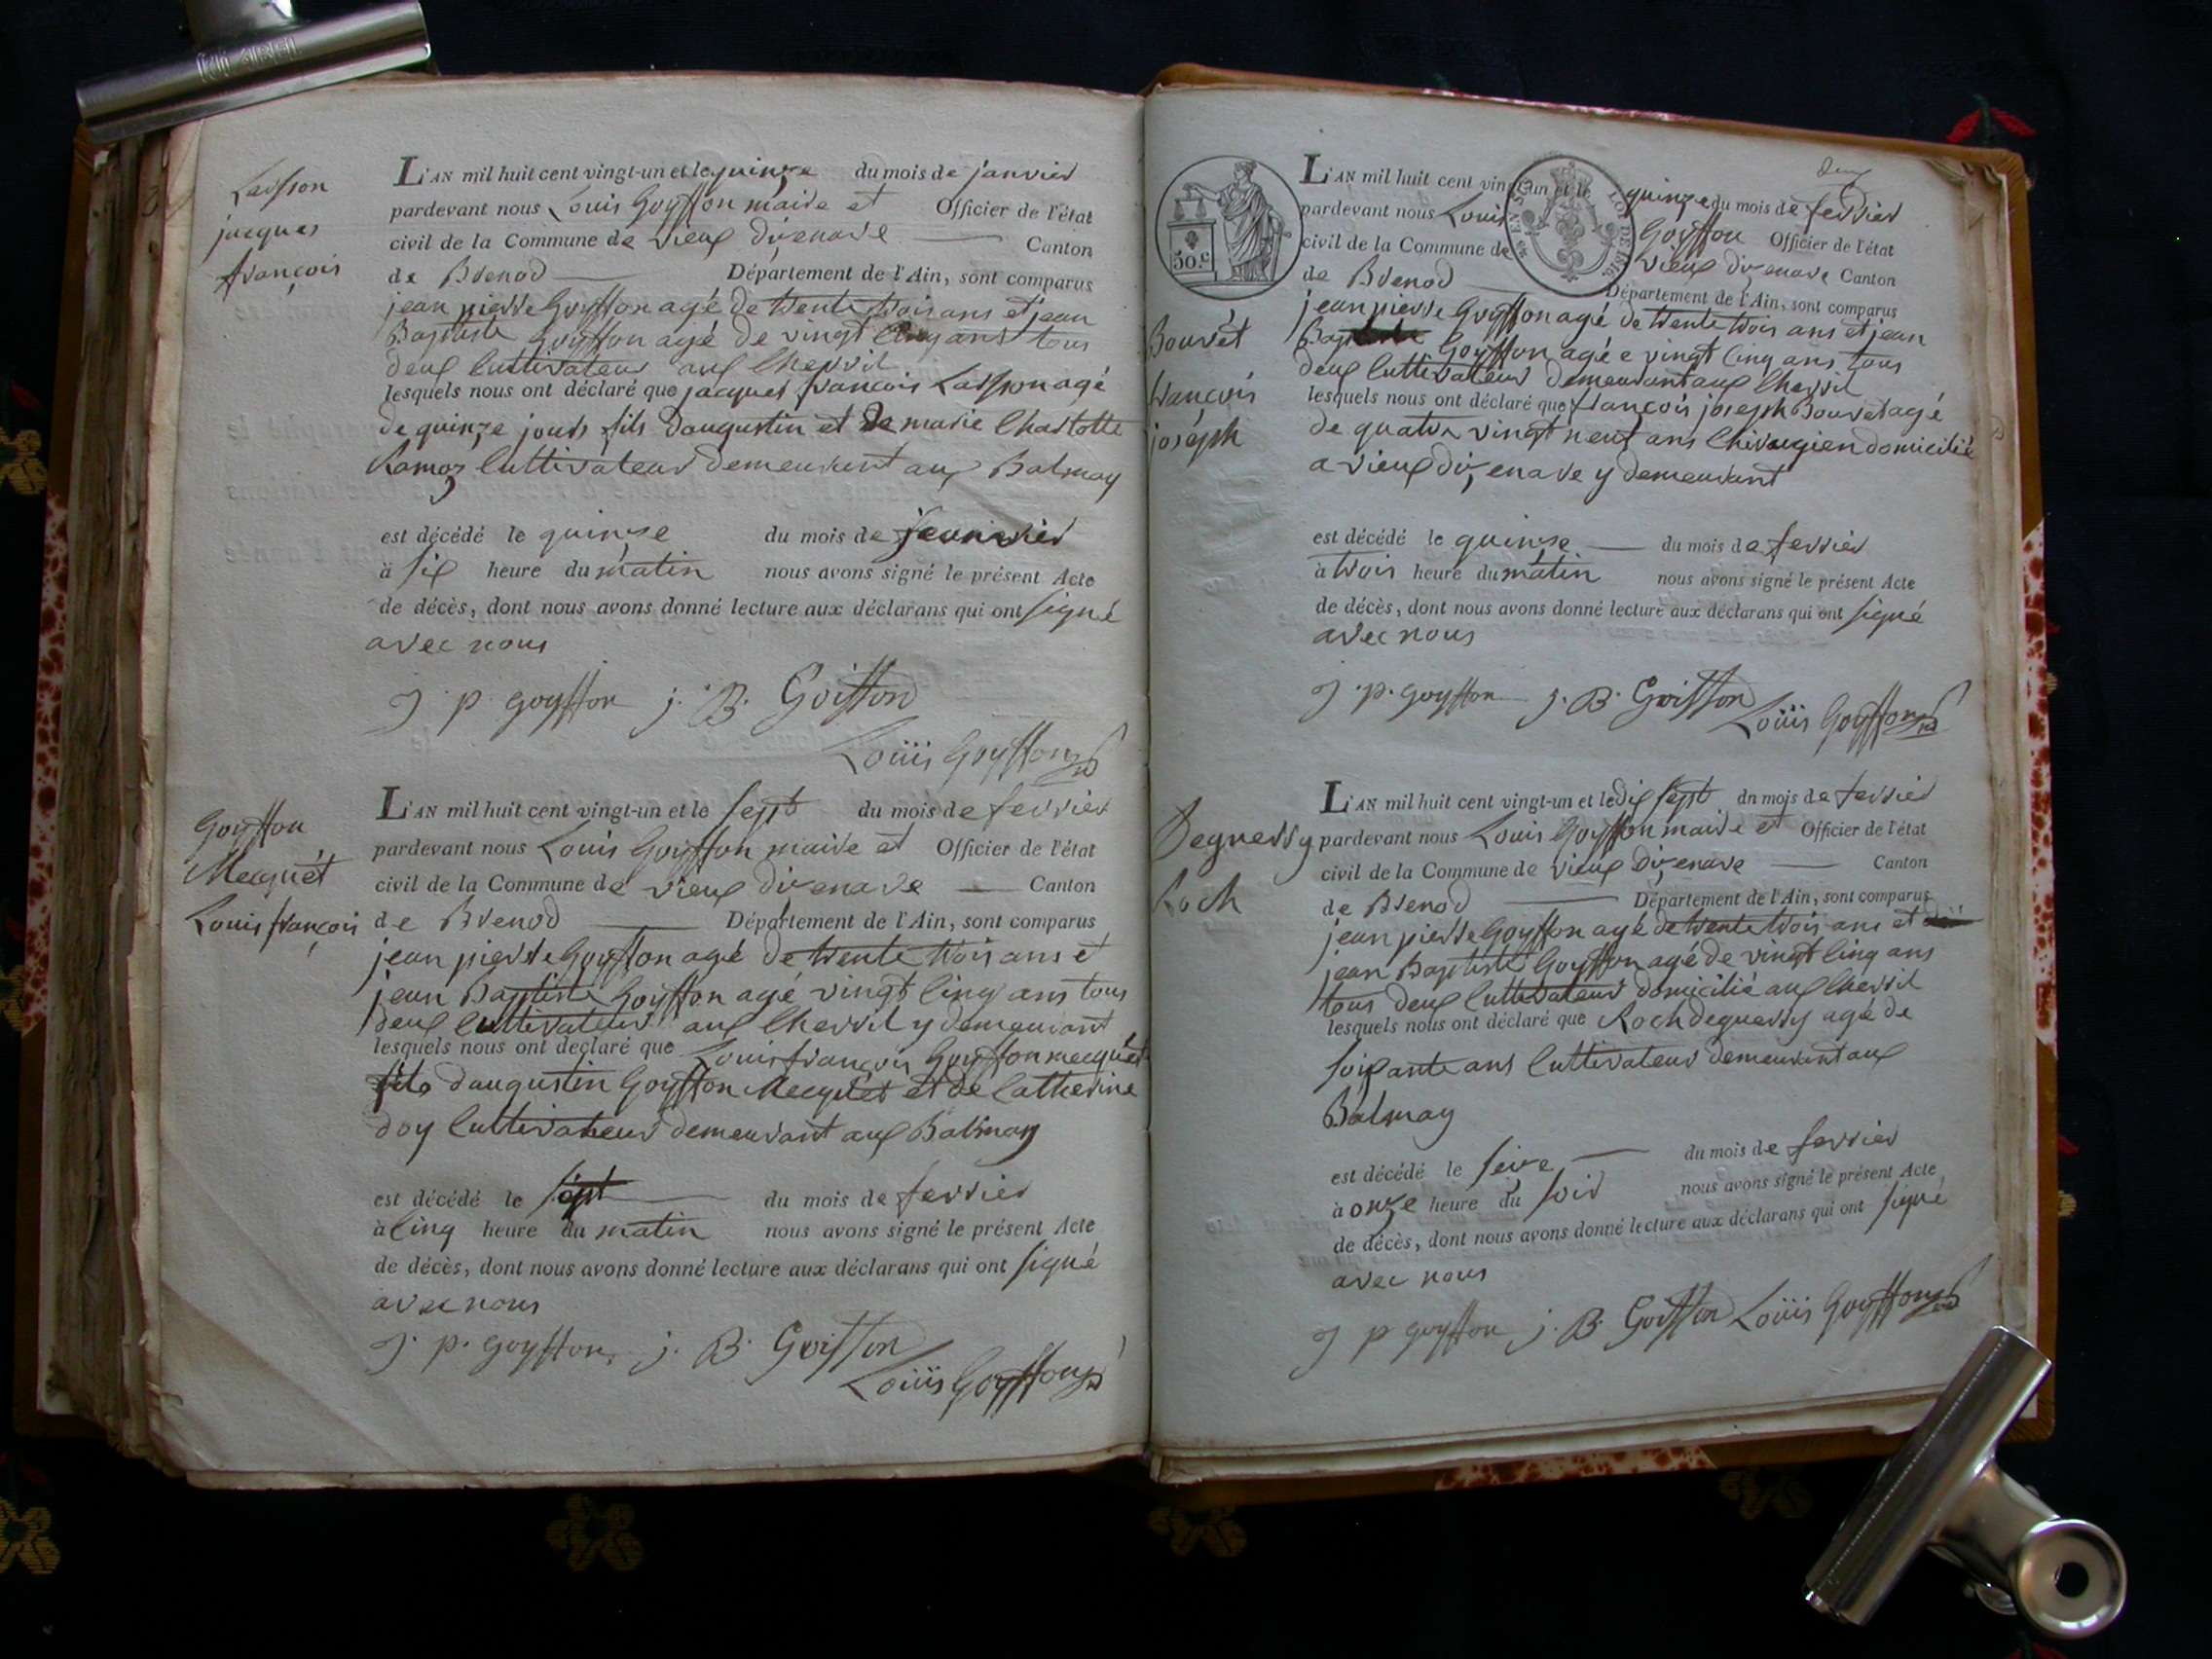 Lasson
jacques
françois
L'AN mil huit cent vingt-un et le quinze du mois de janvier
pardevant nous Louis Goyffon maire et Officier de l'état
civil de la Commune de vieux dizenave Canton
de Brenod Département de l'Ain, sont comparus
jean pierre Goyffon agé de trente trois ans et jean
Baptiste Goyffon agé de vingt cinq ans tous
deux cultivateur aux Chevril
lesquels nous ont déclaré que jacques françois Lasson agé
de quinze jours fils d'augustin et de marie Charlotte
Ramoz cultivateur demeurant aux Balmay
est décédé le quinze du mois de
à six heure du matin nous avons signé le présent Acte
de décès, dont nous avons donné lecture aux déclarans qui ont signé
avec nous
J. p. goyffon j. B. Goiffon
Loüis Goyffon
Goyffon
Mecquét
Louis françois
L'AN mil huit cent vingt-un et le sept du mois de fevrier
pardevant nous Louis Goyffon maire et Officier de l'état
civil de la Commune de vieux dizenave Canton
de Brenod Département de l'Ain, sont comparus
jean pierre Goyffon agé de trente trois ans et
jean Baptiste Goyffon agé vingt cinq ans tous
deux cultivateur aux Chevril y demeurant
lesquels nous ont déclaré que Louis françois Goyffon mecquét
fils d'augustin Goyffon Mecquet et de Catherine
doy cultivateur demeurant aux Balmay
est décédé le sept du mois de fevrier
à cinq heure du matin nous avons signé le présent Acte
de décès, dont nous avons donné lecture aux déclarans qui ont signé
avec nous
J. p. goyffon j. B. Goiffon
Loüis Goyffon
deux
50.c
Bouvét
françois
joséph
L'AN mil huit cent vingt-un et le quinze du mois de fevrier
pardevant nous Louis Goyffon Officier de l'état
civil de la Commune de vieux dizenave Canton
de Brenod Département de l'Ain, sont comparus
jean pierre Goyffon agé de trente trois ans et jean
Baptiste Goyffon agé e vingt cinq ans tous
deux cultivateur demeurant aux Chevril
lesquels nous ont déclaré que françois joseph Bouvet agé
de quatre vingt neuf ans chirurgien domicilié
a vieux dizenave y demeurant
est décédé le quinze du mois de fevrier
à trois heure du matin nous avons signé le présent Acte
de décès, dont nous avons donné lecture aux déclarans qui ont signé
avec nous
J. p. goyffon j. B. Goiffon
Loüis Goyffon
Deguerry
Roch
L'AN mil huit cent vingt-un et le dix sept du mois de fevrier
pardevant nous Louis Goyffon maire et Officier de l'état
civil de la Commune de vieux dizenave Canton
de Brenod Département de l'Ain, sont comparus
jean pierre Goyffon agé de trente trois ans et
jean Baptiste Goyffon agé de vingt cinq ans
tous deux cultivateur domicilié aux Chevril
lesquels nous ont déclaré que Roch deguerry agé de
soixante ans cultivateur demeurant aux
Balmay
est décédé le seize du mois de fevrier
à onze heure du soir nous avons signé le présent Acte
de décès, dont nous avons donné lecture aux déclarans qui ont signé
avec nous
J p goyffon j. B. Goiffon Loüis Goyffon